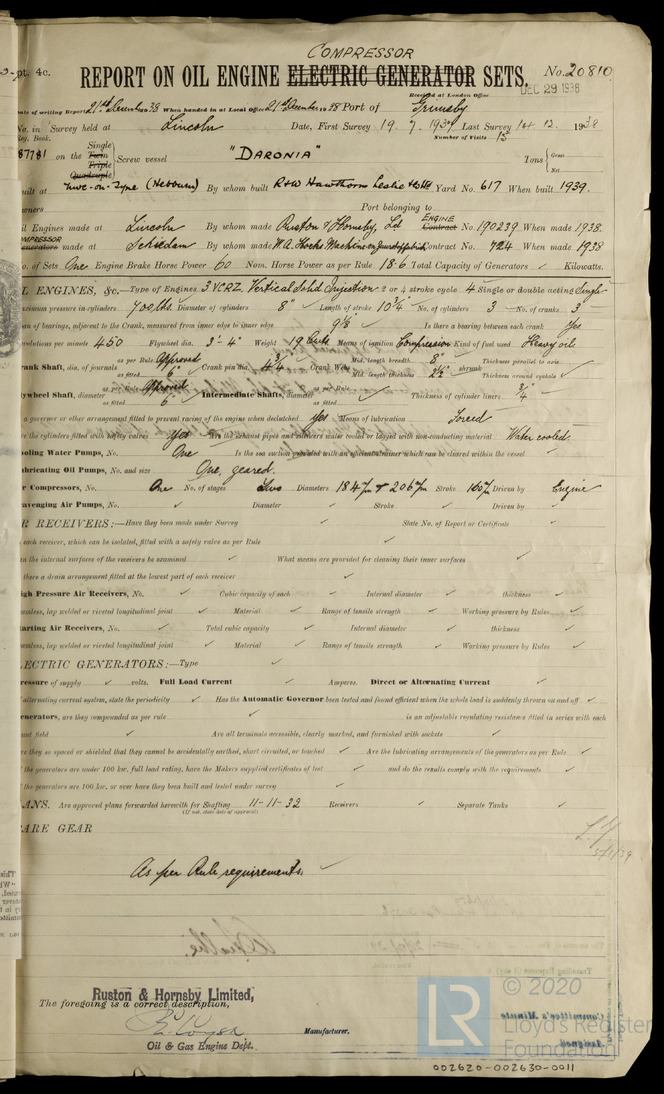 pt. 4c.
COMPRESSOR
REPORT ON OIL ENGINE ELECTRIC GENERATOR SETS. No. 20810
Received at London Office DEC 29 1938
ate of writing Report 21st December 38 When handed in at Local Office 21st December 1938 Port of Grimsby
No. in Survey held at Lincoln Date, First Survey 19.7.1937 Last Survey 14.12.1938
Reg. Book. Number of Visits 15
87781 on the Single Twin Triple Quadruple Screw vessel "DARONIA" Tons Gross Net
uilt at -on-Tyne (Hebburn) By whom built R&W Hawthorn Leslie & Co Ltd Yard No. 617 When built 1939.
wners Port belonging to
il Engines made at Lincoln By whom made Ruston & Hornsby, Ld ENGINE Contract No. 190239 When made 1938.
COMPRESSOR
enerators made at Schiedam By whom made Contract No. 724 When made 1938
o. of Sets One Engine Brake Horse Power 60 Nom. Horse Power as per Rule 18.6 Total Capacity of Generators ✓ Kilowatts.
IL ENGINES, &c.—Type of Engines 3 VCRZ. Vertical Solid Injection 2 or 4 stroke cycle 4 Single or double acting Single
aximum pressure in cylinders 700 lbs Diameter of cylinders 8" Length of stroke 10 3/4" No. of cylinders 3 No. of cranks 3
an of bearings, adjacent to the Crank, measured from inner edge to inner edge 9 1/8" Is there a bearing between each crank Yes
evolutions per minute 450 Flywheel dia. 3'-4" Weight 19 Cwts Means of ignition Compression Kind of fuel used Heavy oil
rank Shaft, dia. of journals as per Rule Approved as fitted 6" Crank pin dia. Crank Webs Mid. length breadth 8" Mid. length thickness 2 1/2" shrunk Thickness parallel to axis Thickness around eyehole ✓
ywheel Shaft, diameter as per Rule Approved as fitted 6" Intermediate Shafts, diameter as per Rule as fitted Thickness of cylinder liners 3/4"
a governor or other arrangement fitted to prevent racing of the engine when declutched Yes Means of lubrication Forced
re the cylinders fitted with safety valves Yes Are the exhaust pipes and silencers water cooled or lagged with non-conducting material Water cooled.
ooling Water Pumps, No. One Is the sea suction provided with an efficient strainer which can be cleared within the vessel ✓
ubricating Oil Pumps, No. and size One, geared.
r Compressors, No. One No. of stages Two Diameters 184 7/m & 206 7/m Stroke 160 7/m Driven by Engine
avenging Air Pumps, No. ✓ Diameter ✓ Stroke ✓ Driven by ✓
R RECEIVERS:—Have they been made under Survey ✓ State No. of Report or Certificate ✓
each receiver, which can be isolated, fitted with a safety valve as per Rule ✓
n the internal surfaces of the receivers be examined ✓ What means are provided for cleaning their inner surfaces ✓
there a drain arrangement fitted at the lowest part of each receiver ✓
igh Pressure Air Receivers, No. ✓ Cubic capacity of each ✓ Internal diameter ✓ thickness ✓
eamless, lap welded or riveted longitudinal joint ✓ Material ✓ Range of tensile strength ✓ Working pressure by Rules ✓
arting Air Receivers, No. ✓ Total cubic capacity ✓ Internal diameter ✓ thickness ✓
eamless, lap welded or riveted longitudinal joint ✓ Material ✓ Range of tensile strength ✓ Working pressure by Rules ✓
LECTRIC GENERATORS:—Type ✓
ressure of supply ✓ volts. Full Load Current ✓ Amperes. Direct or Alternating Current ✓
alternating current system, state the periodicity ✓ Has the Automatic Governor been tested and found efficient when the whole load is suddenly thrown on and off ✓
enerators, are they compounded as per rule ✓ is an adjustable regulating resistance fitted in series with each
unt field ✓ Are all terminals accessible, clearly marked, and furnished with sockets ✓
re they so spaced or shielded that they cannot be accidentally earthed, short circuited, or touched ✓ Are the lubricating arrangements of the generators as per Rule ✓
the generators are under 100 kw. full load rating, have the Makers supplied certificates of test ✓ and do the results comply with the requirements ✓
the generators are 100 kw. or over have they been built and tested under survey ✓
ANS. Are approved plans forwarded herewith for Shafting 11-11-32 Receivers ✓ Separate Tanks ✓
(If not, state date of approval)
ARE GEAR
As per Rule requirements. ✓
Ruston & Hornsby Limited,
The foregoing is a correct description,
Manufacturer.
Oil & Gas Engine Dept.
LR © 2020
Lloyd's Register
Foundation
Committee's Minute
Assigned
002620-002630-0011